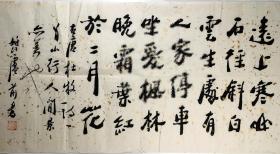 遠上寒山
石徑斜白
雲生處有
人家停車
坐愛楓林
晚霜葉紅
於二月花
唐杜牧詩
山行人間景